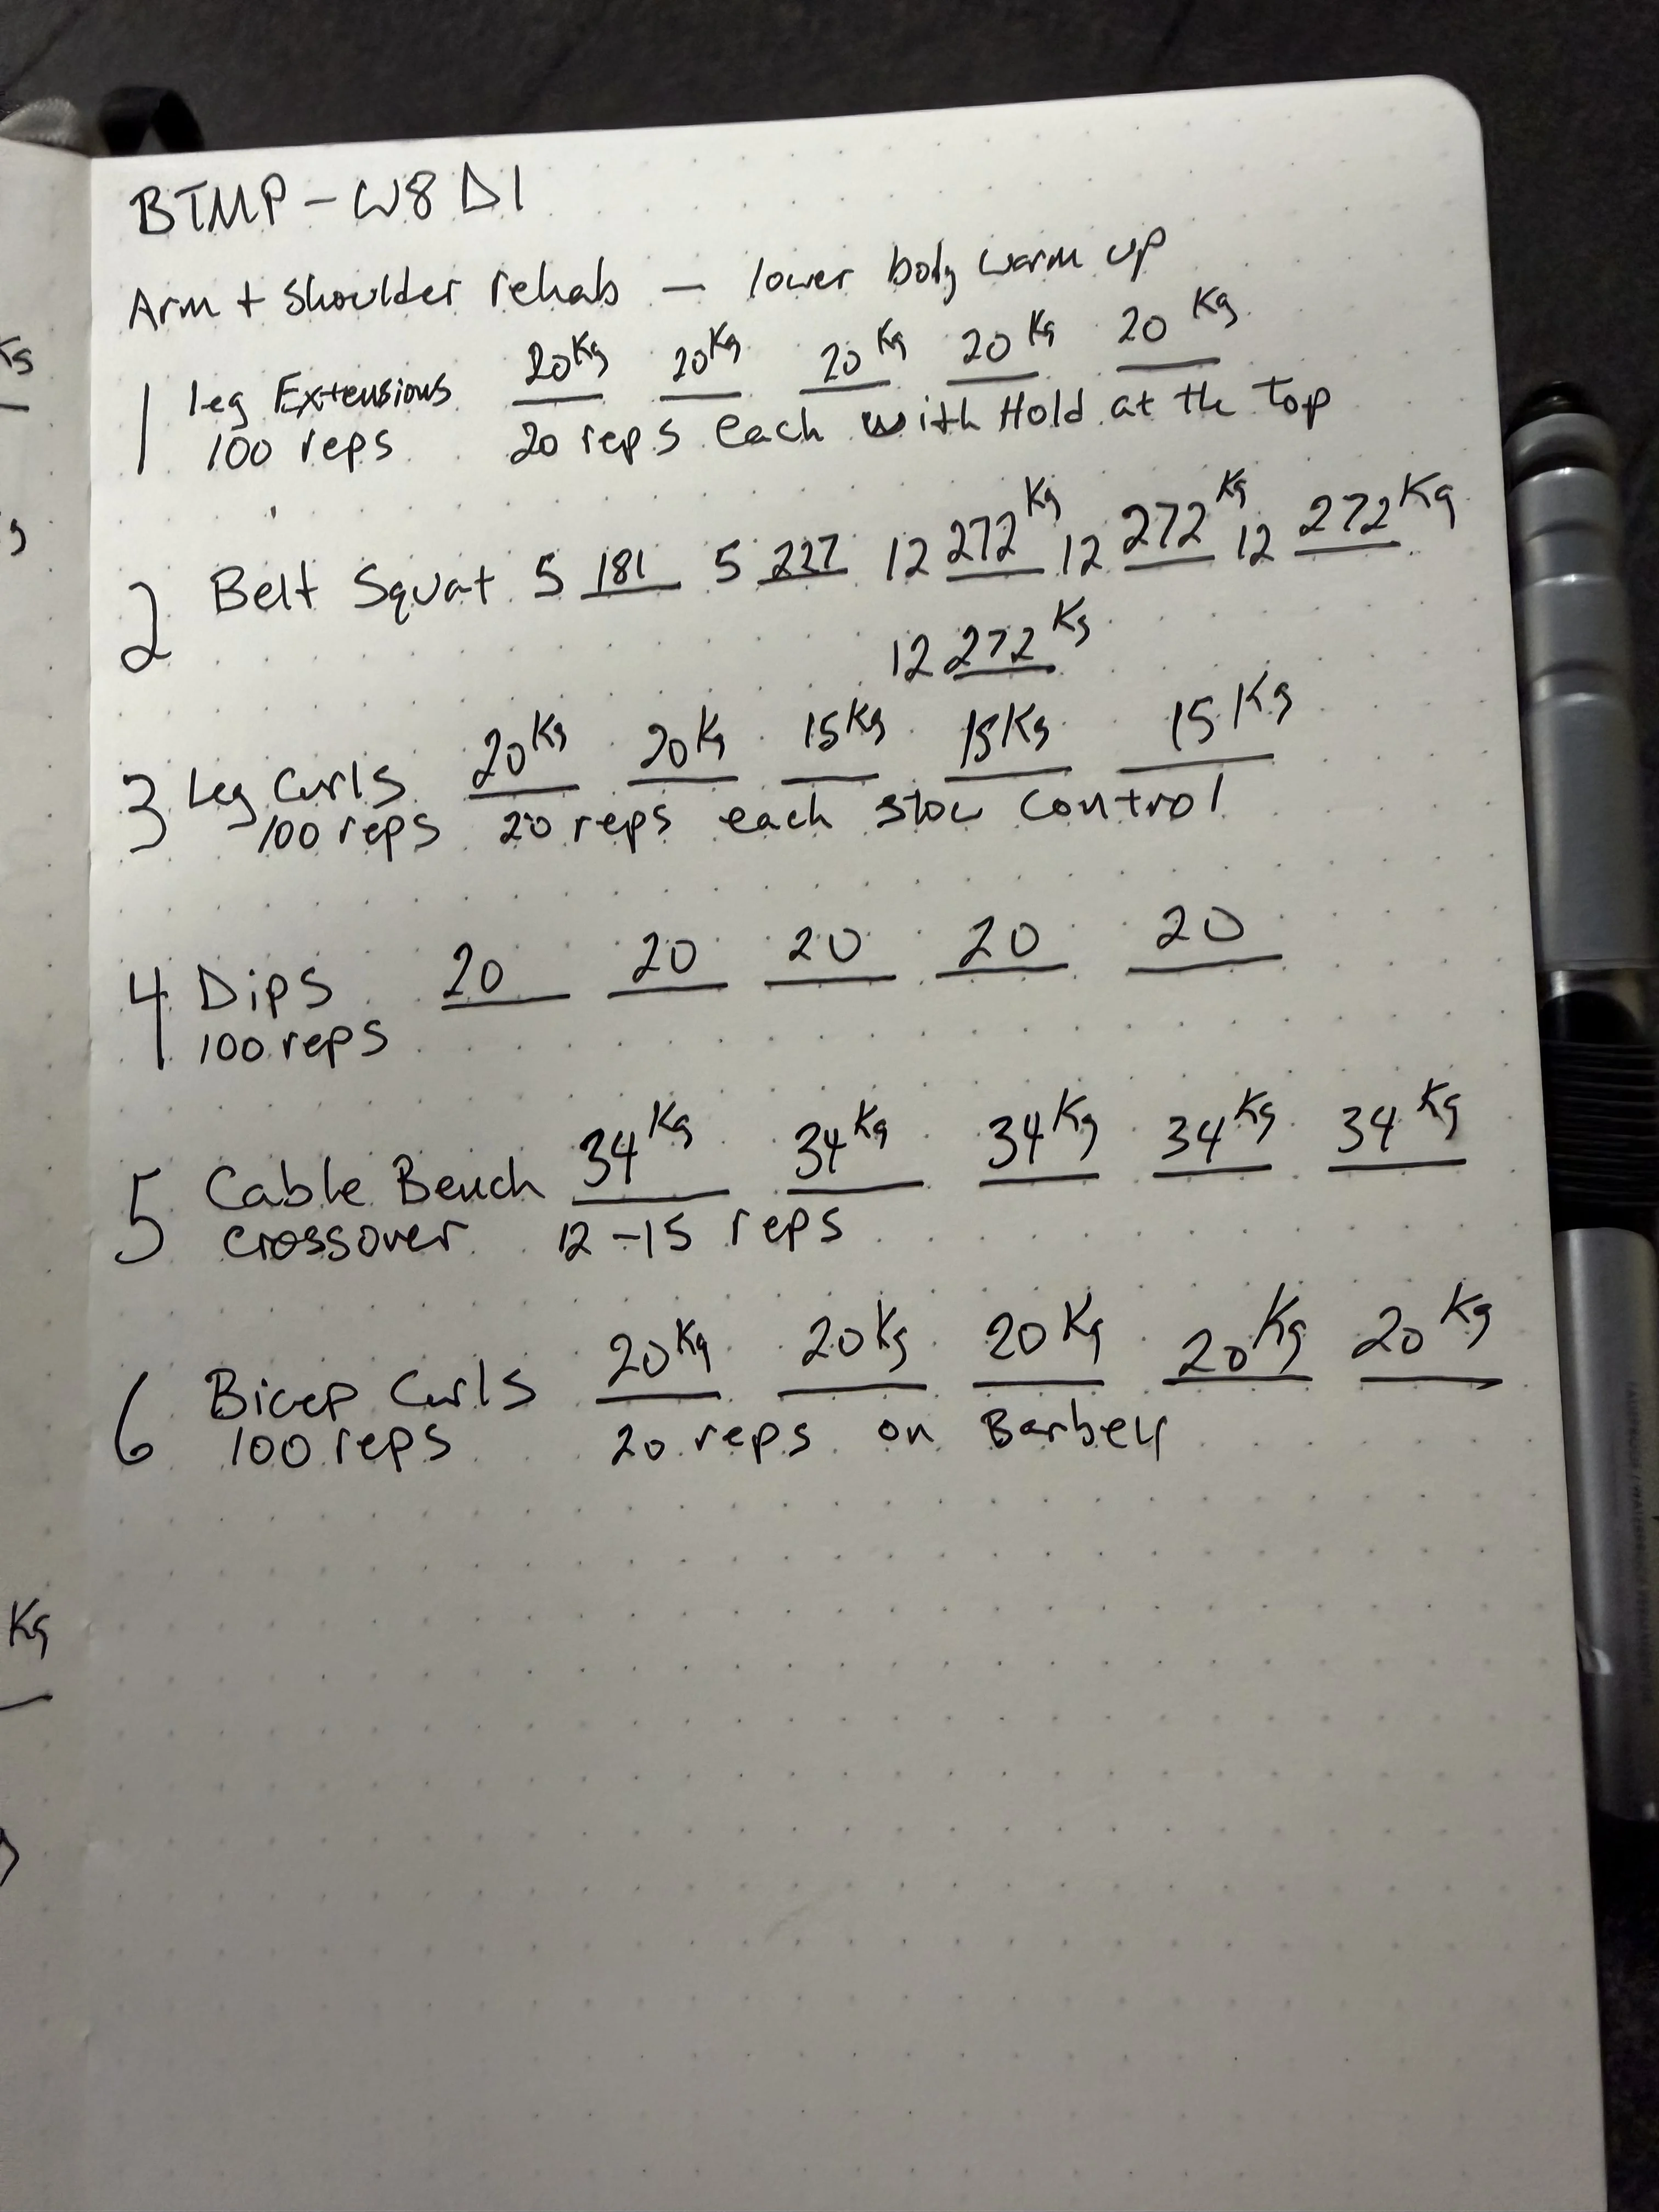 BTMP - W8 D1
Arm + Shoulder rehab — lower body warm up
1 leg Extensions 20Kg 20Kg 20Kg 20Kg 20Kg
100 reps 20 reps each with Hold at the Top
2 Belt Squat 5 181 5 227 12 272Kg 12 272Kg 12 272Kg
12 272Kg
3 Leg Curls 20Kg 20Kg 15Kg 15Kg 15Kg
100 reps 20 reps each slow control
4 Dips 20 20 20 20 20
100 reps
5 Cable Bench 34Kg 34Kg 34Kg 34Kg 34Kg
crossover 12-15 reps
6 Bicep Curls 20Kg 20Kg 20Kg 20Kg 20Kg
100 reps 20 reps on Barbell
Kg
Kg